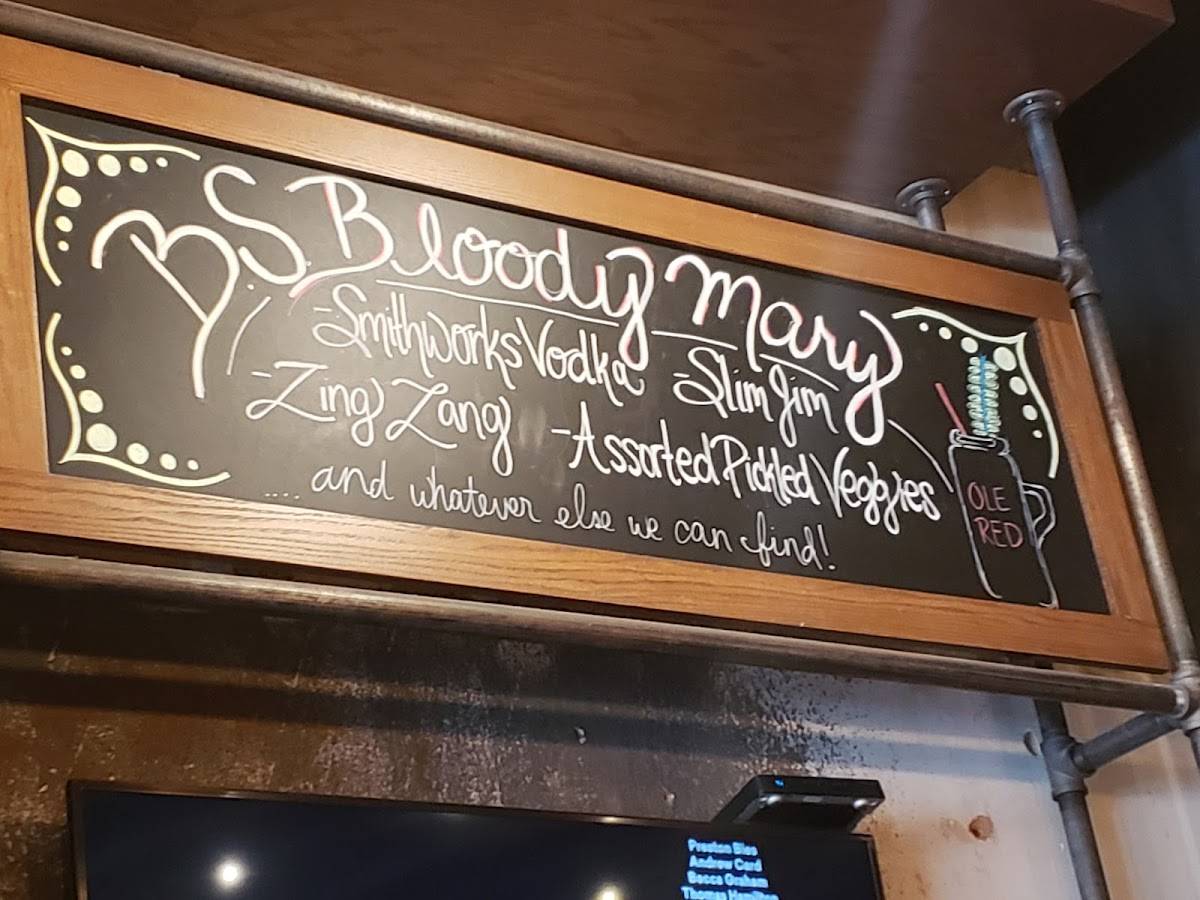 B.S. Bloody Mary
-Smithworks Vodka -Slim Jim
-Zing Zang -Assorted Pickled Veggies
.... and whatever else we can find!
OLE
RED
Preston Bles
Andrew Card
Becca Graham
Thomas Hamilton